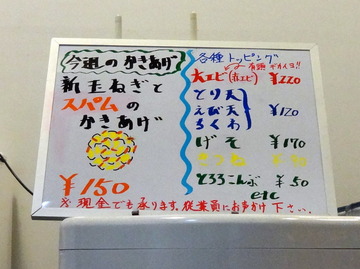 今週のかきあげ
新玉ねぎと
スパムの
かきあげ
¥150
各種トッピング
大エビ(赤エビ) ¥220
とり天
えび天
ちくわ
¥120
げそ ¥170
きつね
とろろこんぶ ¥50
etc
※現金でも承ります。従業員にお声かけ下さい。